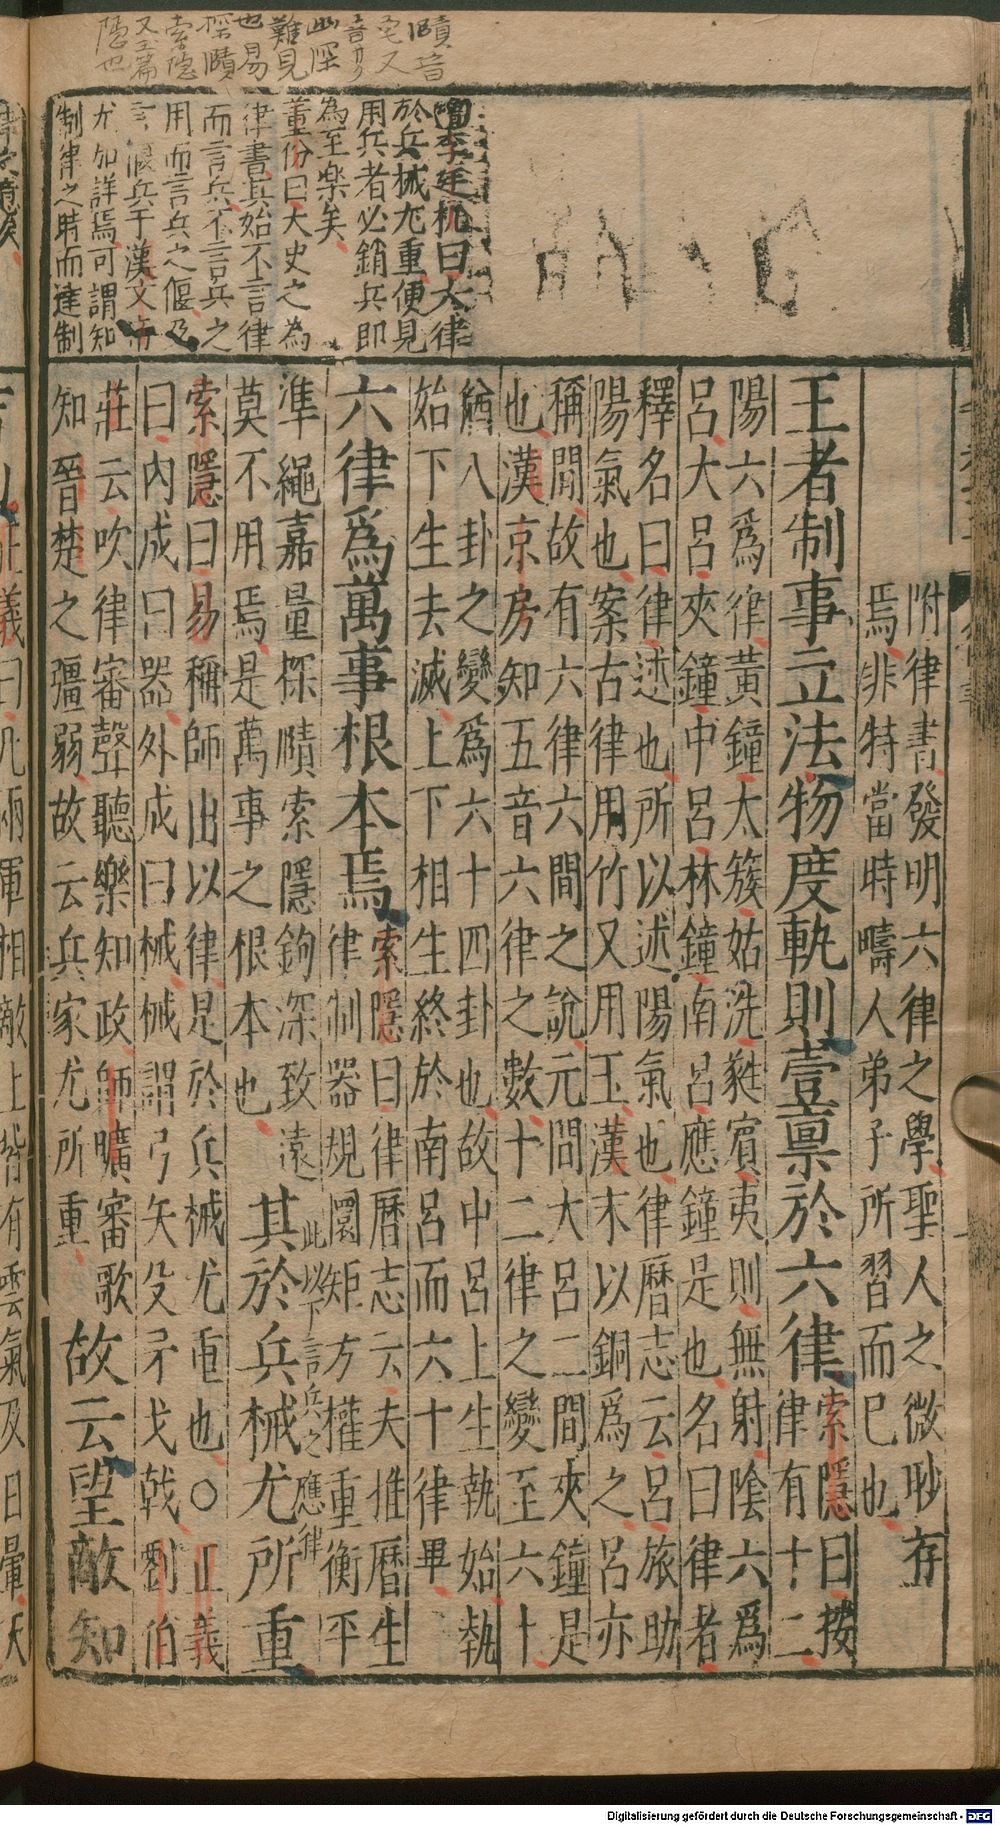 賾音
宅又
音責
幽深
難見
也易
探賾
索隱
又玉篇
隱也
增李廷机曰大律
於兵械尢重便見
用兵者必銷兵即
為至樂矣
董份曰大史之為
律書其始不言律
而言兵不言兵之
用而言兵之偃及
言偃兵于漢文帝
尢加詳焉可謂知
制律之時而達制
附律書發明六律之學聖人之微眇存
焉非特當時疇人弟子所習而巳也
王者制事立法物度軌則壹禀於六律
索隱曰按
律有十二
陽六爲律黃鐘太簇姑洗蕤賓夷則無射陰六爲
呂大呂夾鐘中呂林鐘南呂應鐘是也名曰律者
釋名曰律述也所以述陽氣也律曆志云呂旅助
陽氣也案古律用竹又用玉漢末以銅爲之呂亦
稱間故有六律六間之說元間大呂二間夾鐘是
也漢京房知五音六律之數十二律之變至六十
猶八卦之變爲六十四卦也故中呂上生執始執
始下生去滅上下相生終於南呂而六十律畢
六律爲萬事根本焉
索隱曰律曆志云夫推曆生
律制器規圜矩方權重衡平
準繩嘉量探賾索隱鉤深致遠
莫不用焉是萬事之根本也
此以下言兵之應律
其於兵械尤所重
索隱曰易稱師出以律是於兵械尤重也○正義
曰內成曰器外成曰械械謂弓矢殳矛戈戟劉伯
莊云吹律審聲聽樂知政師曠審歌
知晉楚之彊弱故云兵家尤所重
故云望敵知
Digitalisierung gefördert durch die Deutsche Forschungsgemeinschaft - DFG